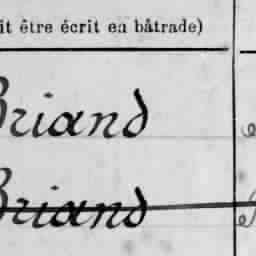 it être écrit en bâtrade)
Briand
Briand